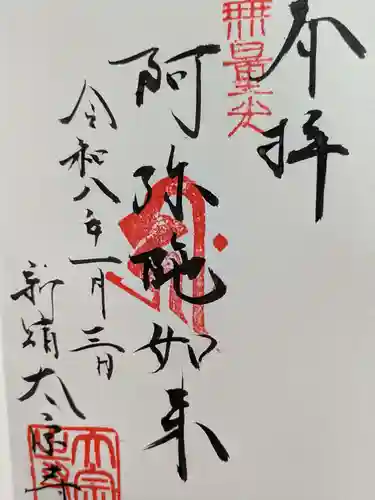 奉拝
無量光
阿弥陀如来
令和八年一月三日
新宿太宗寺